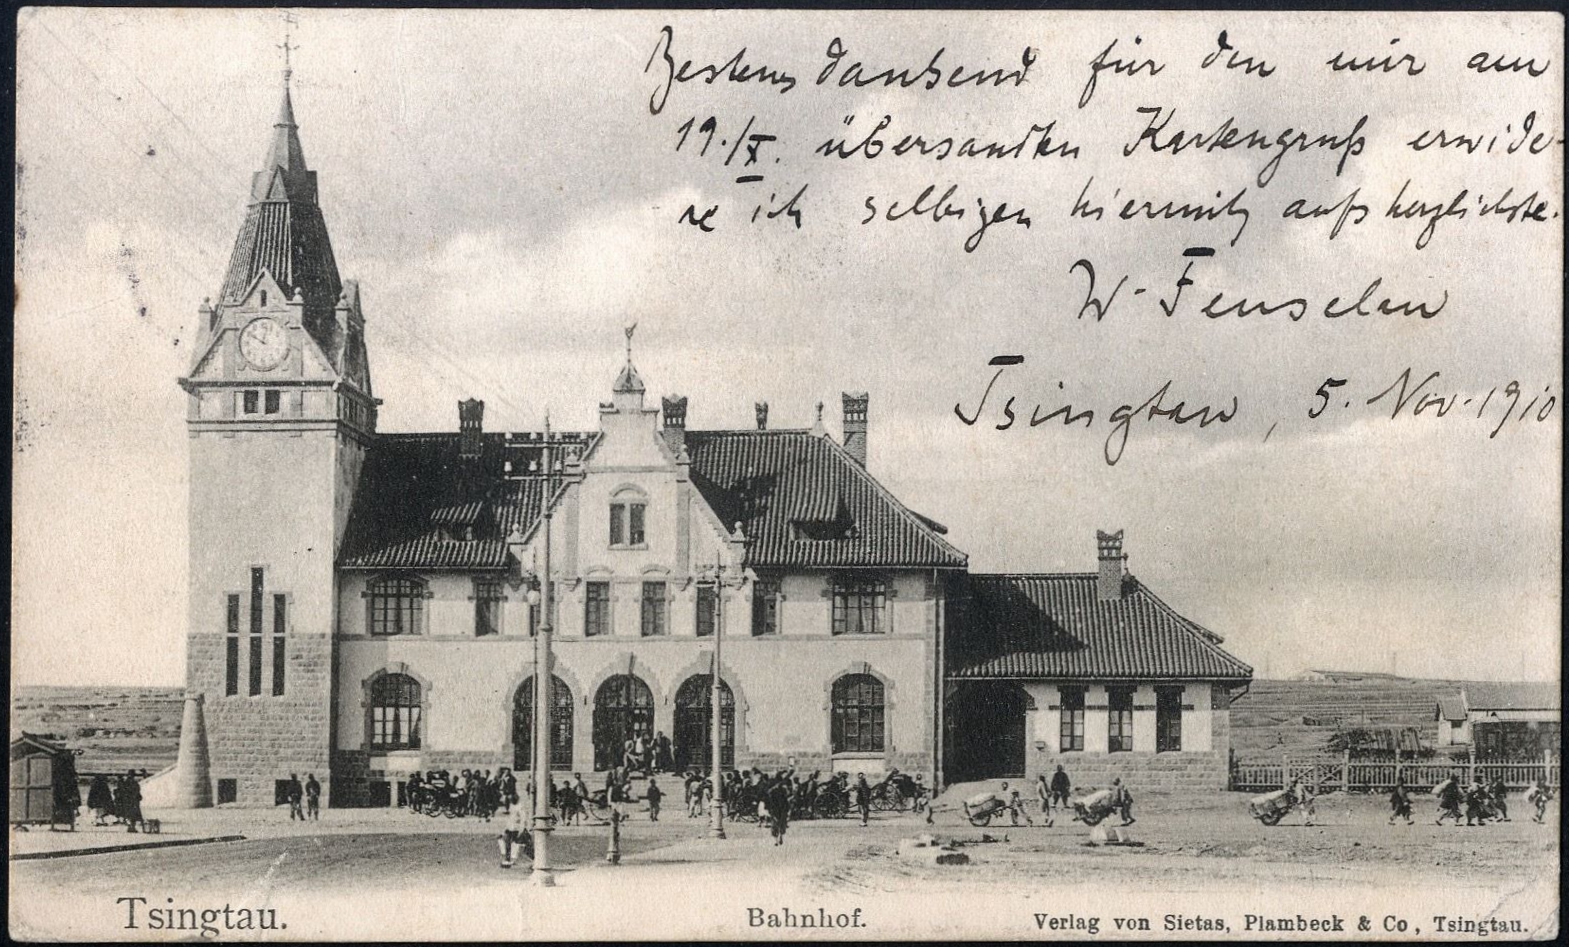 Bestens dankend für den mir am
19./X. übersandten Kartengruß erwide-
re ich selbigen hiermit aufs herzlichste.
W. Fenselau
Tsingtau, 5. Nov. 1910
Tsingtau.
Bahnhof.
Verlag von Sietas, Plambeck & Co, Tsingtau.